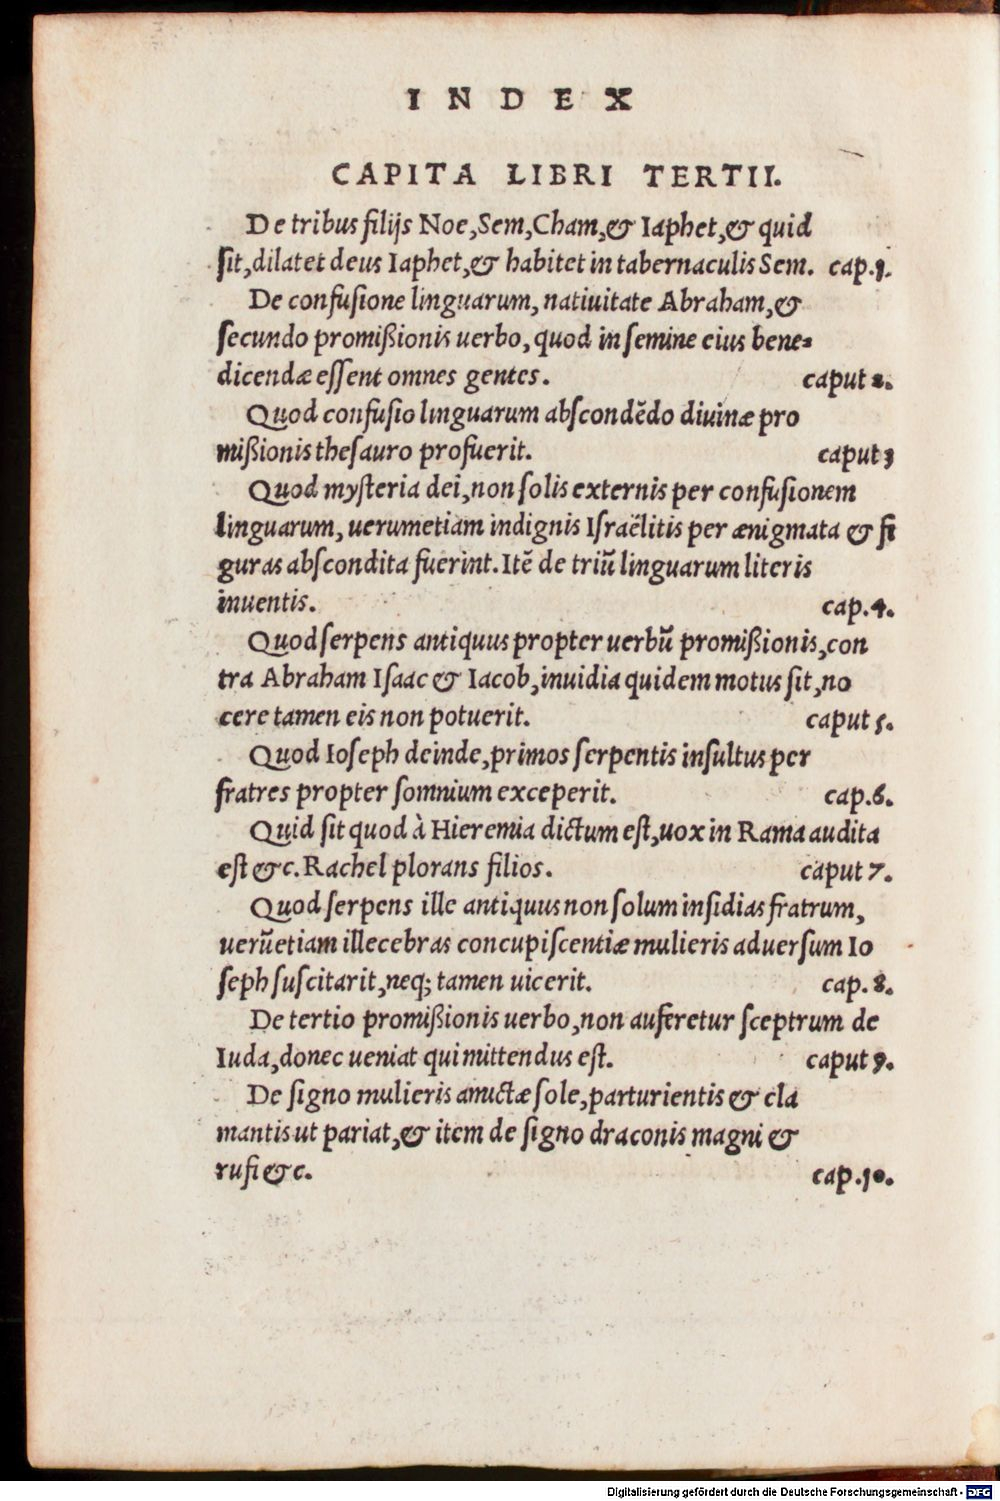 INDEX
CAPITA LIBRI TERTII.
De tribus filijs Noe, Sem, Cham, & Iaphet, & quid
sit, dilatet deus Iaphet, & habitet in tabernaculis Sem. cap.1.
De confusione linguarum, natiuitate Abraham, &
secundo promißionis uerbo, quod in semine eius bene=
dicendæ essent omnes gentes. caput 2.
Quod confusio linguarum abscondēdo diuinæ pro
mißionis thesauro profuerit. caput 3
Quod mysteria dei, non solis externis per confusionem
linguarum, uerumetiam indignis Israëlitis per ænigmata & fi
guras abscondita fuerint. Itē de triū linguarum literis
inuentis. cap.4.
Quod serpens antiquus propter uerbū promißionis, con
tra Abraham Isaac & Iacob, inuidia quidem motus sit, no
cere tamen eis non potuerit. caput 5.
Quod Ioseph deinde, primos serpentis insultus per
fratres propter somnium exceperit. cap.6.
Quid sit quod à Hieremia dictum est, uox in Rama audita
est &c. Rachel plorans filios. caput 7.
Quod serpens ille antiquus non solum insidias fratrum,
uerūetiam illecebras concupiscentiæ mulieris aduersum Io
seph suscitarit, neq; tamen uicerit. cap. 8.
De tertio promißionis uerbo, non auferetur sceptrum de
Iuda, donec ueniat qui mittendus est. caput 9.
De signo mulieris amictæ sole, parturientis & cla
mantis ut pariat, & item de signo draconis magni &
rufi &c. cap.10.
Digitalisierung gefördert durch die Deutsche Forschungsgemeinschaft - DFG